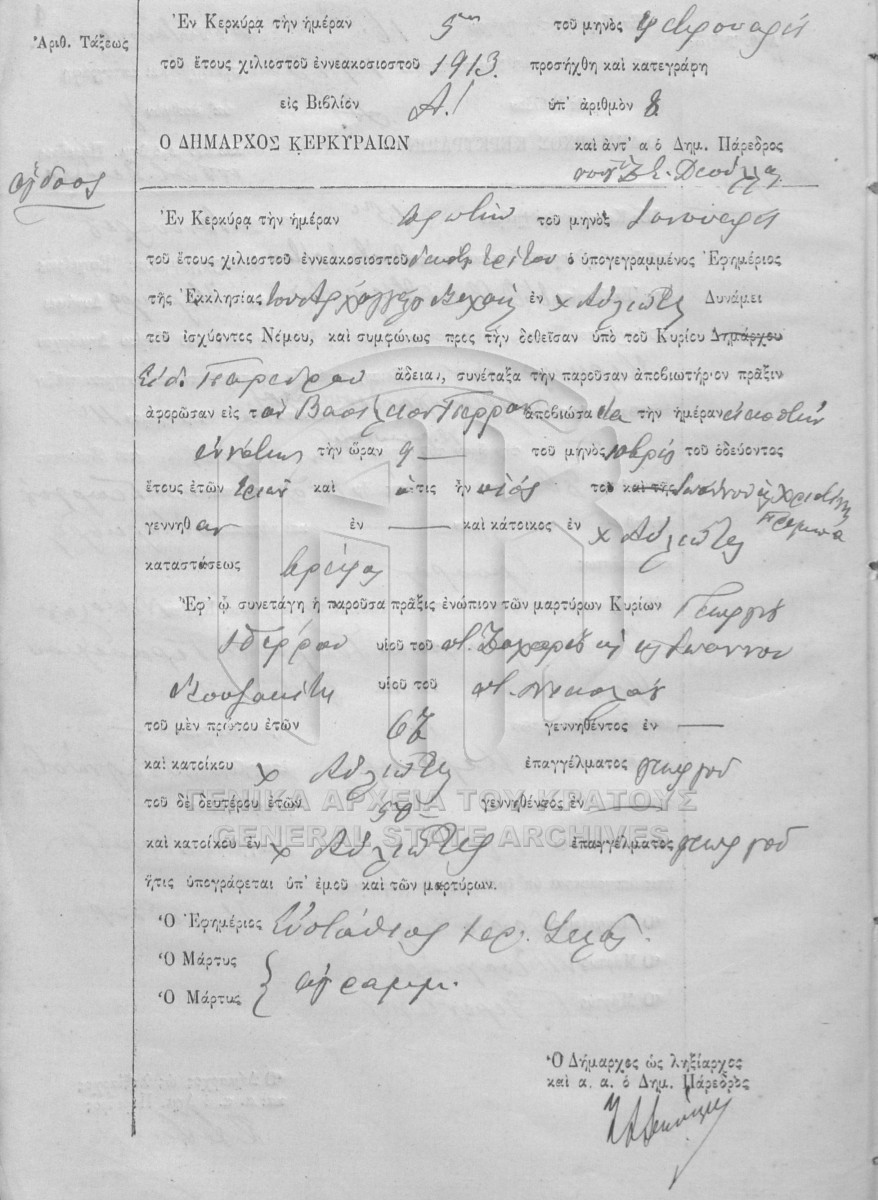 Ἐν Κερκύρᾳ τὴν ἡμέραν 5ην τοῦ μηνὸς Φεβρουαρίου
Ἀριθ. Τάξεως
τοῦ ἔτους χιλιοστοῦ ἐννεακοσιοστοῦ 1913. προσήχθη καὶ κατεγράφη
εἰς Βιβλίον Α! ὑπ' ἀριθμὸν 8
Ο ΔΗΜΑΡΧΟΣ ΚΕΡΚΥΡΑΙΩΝ καὶ ἀντ' α ὁ Δημ. Πάρεδρος
ὄγδοος
Ἐν Κερκύρᾳ τὴν ἡμέραν πρώτην τοῦ μηνὸς Ἰανουαρίου
τοῦ ἔτους χιλιοστοῦ ἐννεακοσιοστοῦ δεκάτου τρίτου ὁ ὑπογεγραμμένος Ἐφημέριος
τῆς Ἐκκλησίας Ἀρχαγγέλου Μιχαὴλ ἐν χ Αὐλιώτες Δυνάμει
τοῦ ἰσχύοντος Νόμου, καὶ συμφώνως πρὸς τὴν δοθεῖσαν ὑπὸ τοῦ Κυρίου Δημάρχου
Παρέδρου ἄδειαν, συνέταξα τὴν παροῦσαν ἀποβιωτήριον πρᾶξιν
ἀφορῶσαν εἰς τὸν Βασίλειον ἀποβιώσαντα τὴν ἡμέραν εἰκοστὴν
ἐννάτην τὴν ὥραν 9 — τοῦ μηνὸς τοῦ ὁδεύοντος
ἔτους ἐτῶν τριῶν καὶ ὅστις ἦν υἱός τοῦ καὶ τῆς Ἰωάννου
γεννηθὲν ἐν — καὶ κάτοικος ἐν χ Αὐλιώτες
καταστάσεως βρέφος
Ἐφ' ᾧ συνετάγη ἡ παροῦσα πρᾶξις ἐνώπιον τῶν μαρτύρων Κυρίων Γεωργίου
υἱοῦ τοῦ π. Ζαχαρίου καὶ Ἰωάννου
υἱοῦ τοῦ π. Νικολάου
τοῦ μὲν πρώτου ἐτῶν 67 γεννηθέντος ἐν —
καὶ κατοίκου χ Αὐλιώτες ἐπαγγέλματος γεωργοῦ
ΓΕΝΙΚΑ ΑΡΧΕΙΑ ΤΟΥ ΚΡΑΤΟΥΣ
τοῦ δὲ δευτέρου ἐτῶν 50 γεννηθέντος ἐν —
GENERAL STATE ARCHIVES
καὶ κατοίκου ἐν χ Αὐλιώτες ἐπαγγέλματος γεωργοῦ
ἥτις ὑπογράφεται ὑπ' ἐμοῦ καὶ τῶν μαρτύρων.
Ὁ Ἐφημέριος Εὐστάθιος ἱερ.
Ὁ Μάρτυς
ἀγράμμ.
Ὁ Μάρτυς
Ὁ Δήμαρχος ὡς ληξίαρχος
καὶ α. α. ὁ Δημ. Πάρεδρος